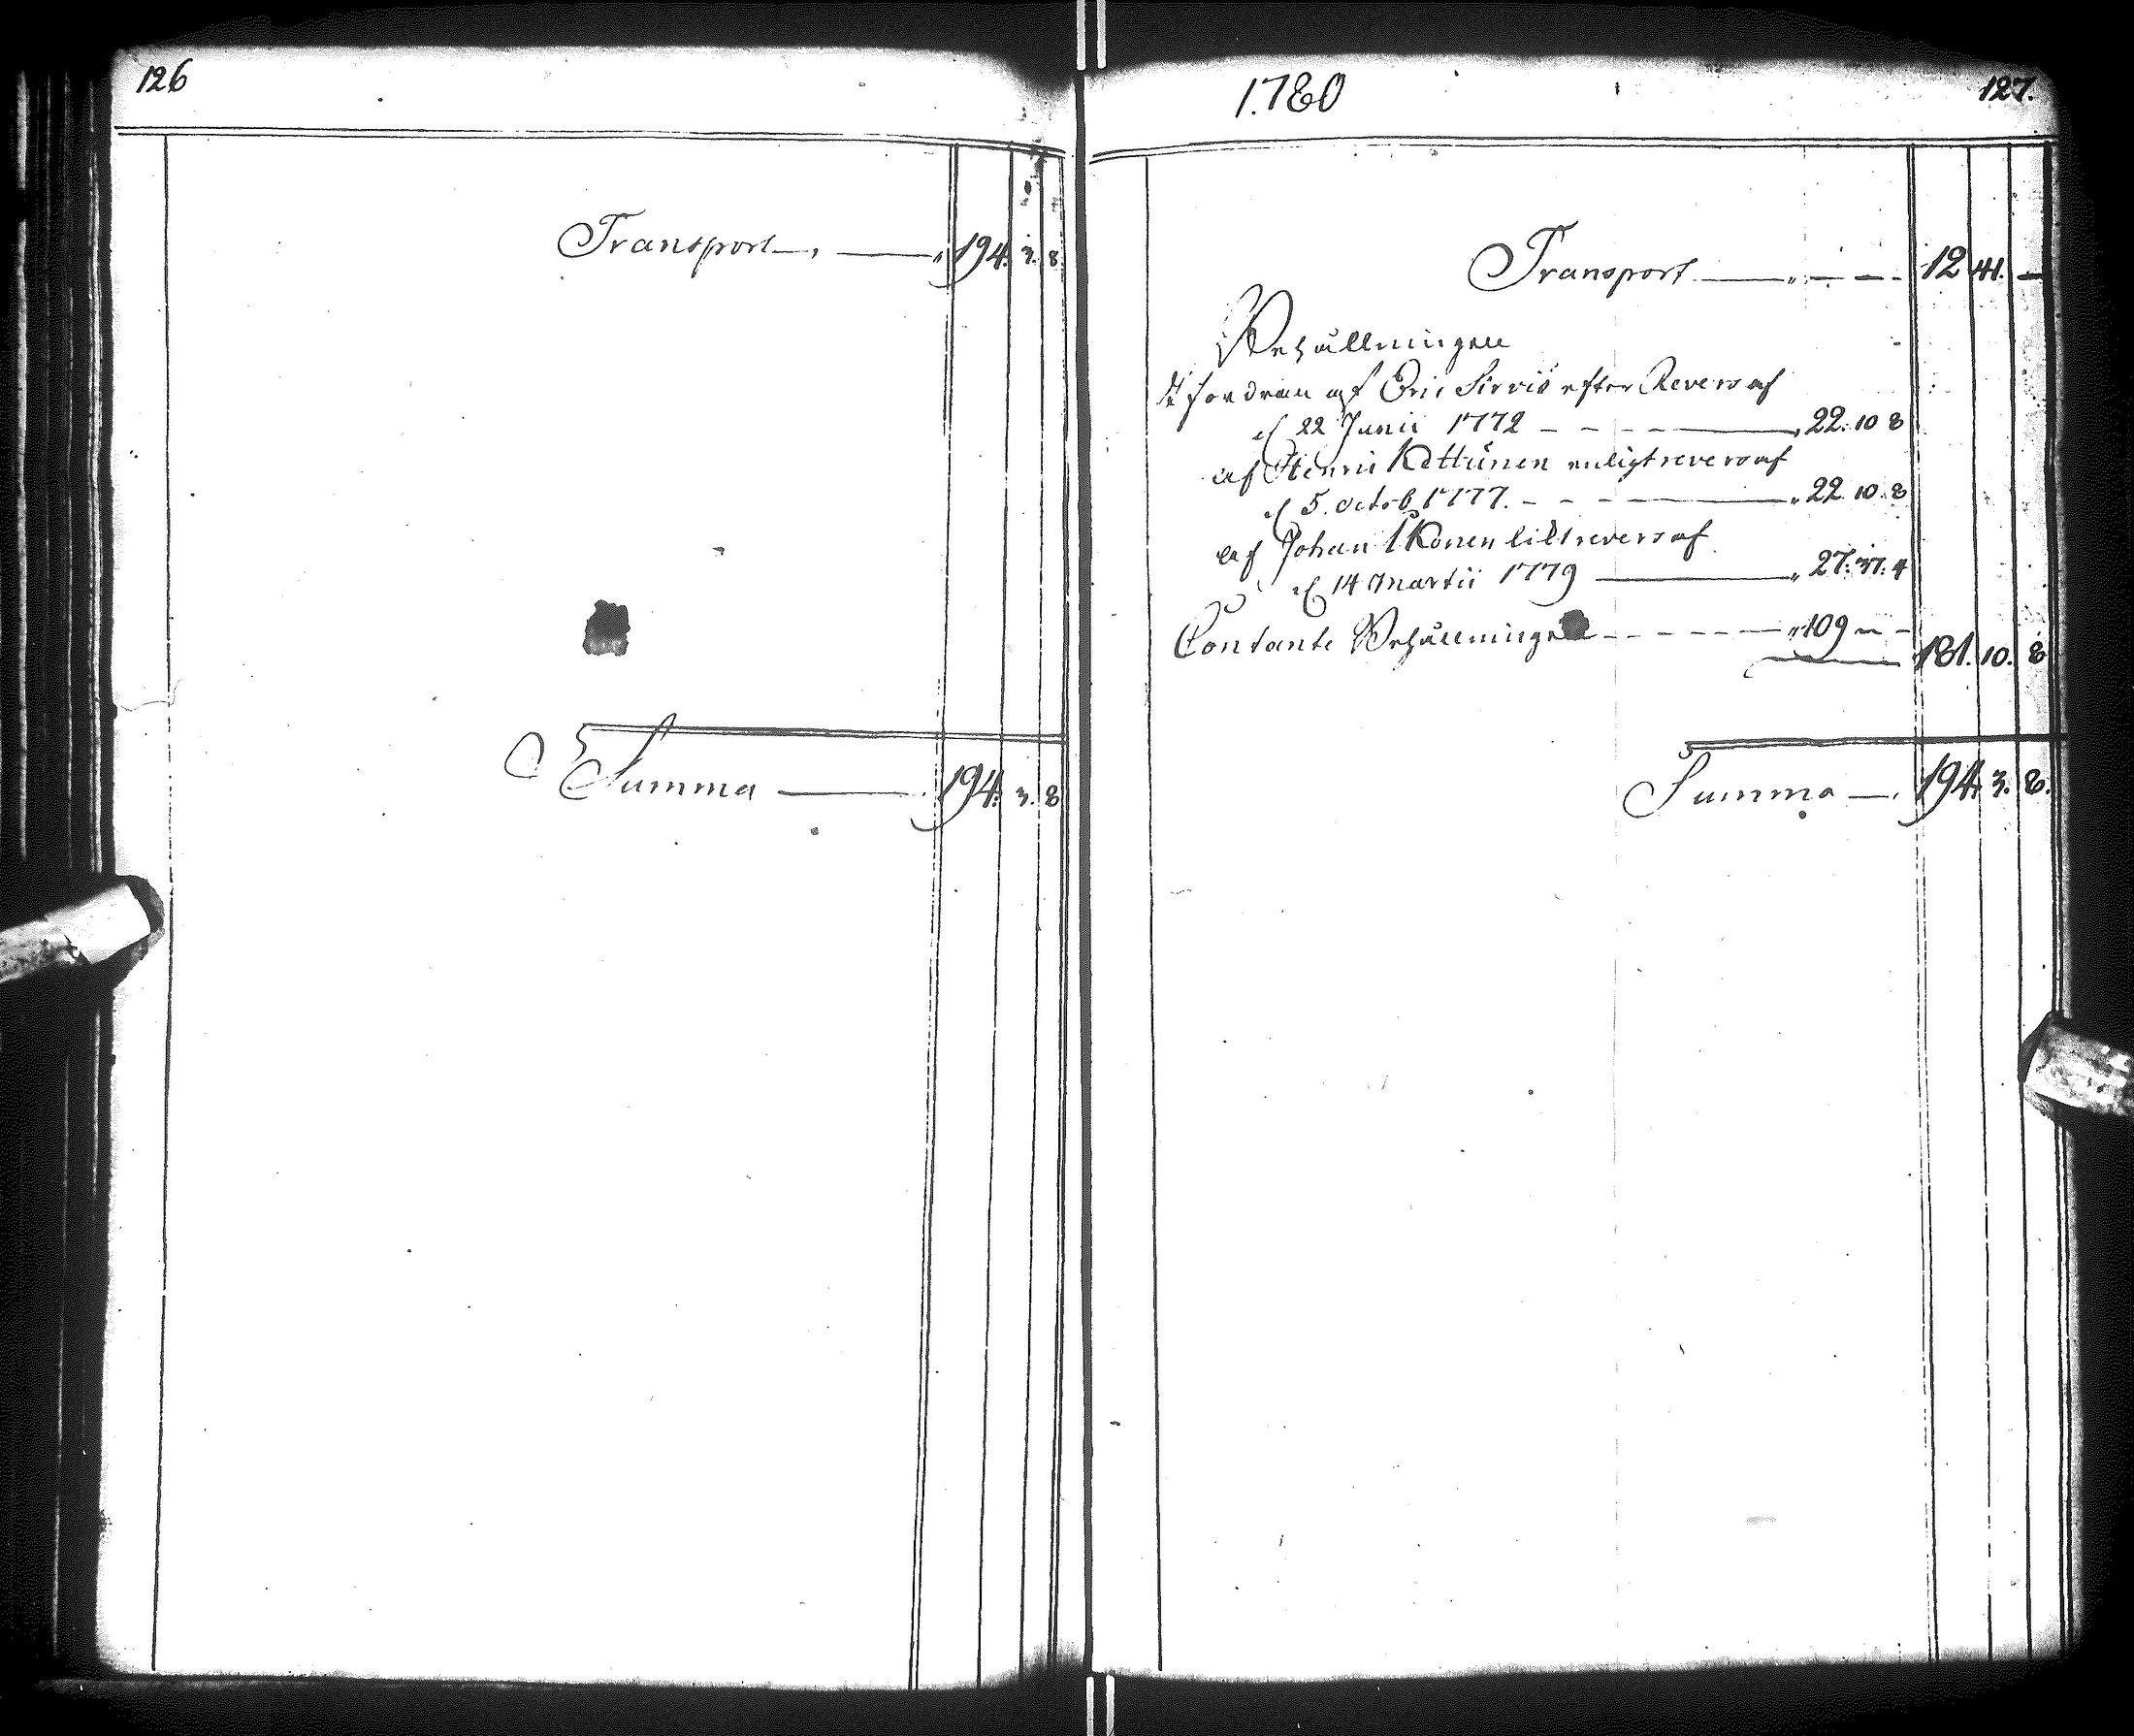 126
Transport — „ 194. 3. 8.
Summa — 194. 3. 8
1780
127.
Transport — „ — 12 41. —
Behållningen
fordran af Eric Sirviö efter Revers af
d 22 Junii 1772 — — — „ 22. 10 8
af Henric Kettunen enligt revers af
d 5. octob. 1777. — — — „ 22. 10. 8
af Johan Ikonen likt revers af
d 14 Martii 1779 — „ 27. 37. 4
Contante Behållningen — — — „ 109 — —
181. 10. 8
Summa — 194. 3. 8.